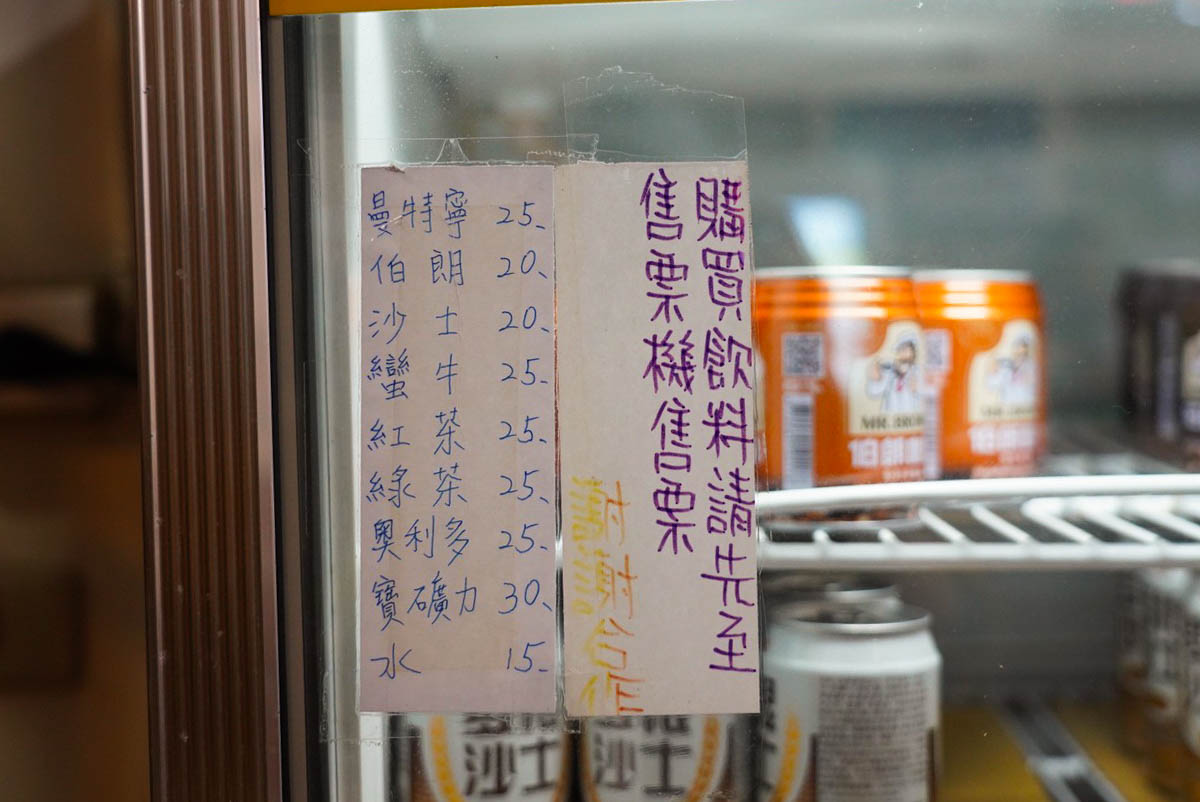 曼特寧 25.
伯朗 20.
沙士 20.
蠻牛 25.
紅茶 25.
綠茶 25.
奧利多 25.
寶礦力 30.
水 15.
購買飲料請先至
售票機售票
謝謝合作
MR. BROWN
伯朗
沙士
沙士